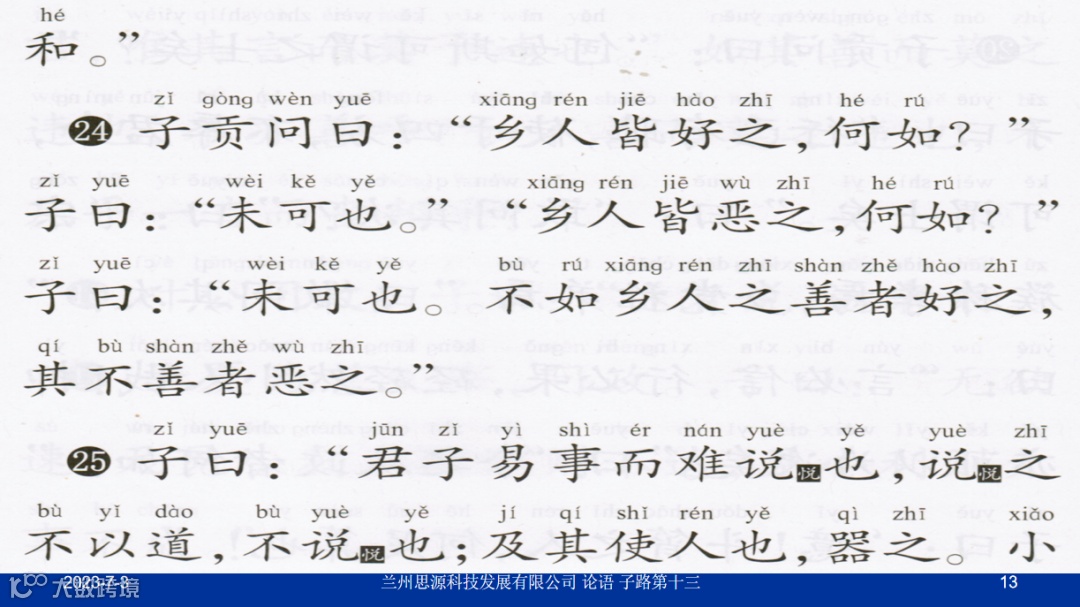 hé
和。”
zǐ gòng wèn yuē xiāng rén jiē hào zhī hé rú
24 子贡问曰：“乡人皆好之，何如？”
zǐ yuē wèi kě yě xiāng rén jiē wù zhī hé rú
子曰：“未可也。”“乡人皆恶之，何如？”
zǐ yuē wèi kě yě bù rú xiāng rén zhī shàn zhě hào zhī
子曰：“未可也。不如乡人之善者好之，
qí bù shàn zhě wù zhī
其不善者恶之。”
zǐ yuē jūn zǐ yì shì ér nán yuè yě yuè zhī
25 子曰：“君子易事而难说悦也，说悦之
bù yǐ dào bù yuè yě jí qí shǐ rén yě qì zhī xiǎo
不以道，不说悦也；及其使人也，器之。小
大数跨境
兰州思源科技发展有限公司 论语 子路第十三
13